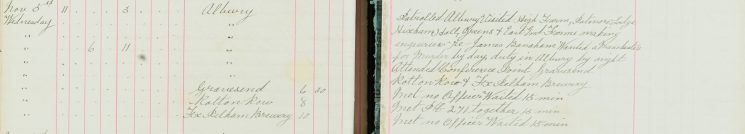 Nov 5th 11 3 Albury
Wednesday "
"
6 11 "
"
"
Gravesend 6 30
Rotton Row 8
Fx Pelham Brewery 10
Patrolled Albury Visited High Farm, Patmore Lodge
Hixham Hall, Greens & East End Farms making
inquiries re James Bonsham Wanted
for Murder by day, duty in Albury by night
Attended Conference Point Gravesend
Rotton Row & Fx Pelham Brewery
Met no Officer Waited 15 min
Met P.C. 271 together 15 min
Met no Officer Waited 15 min